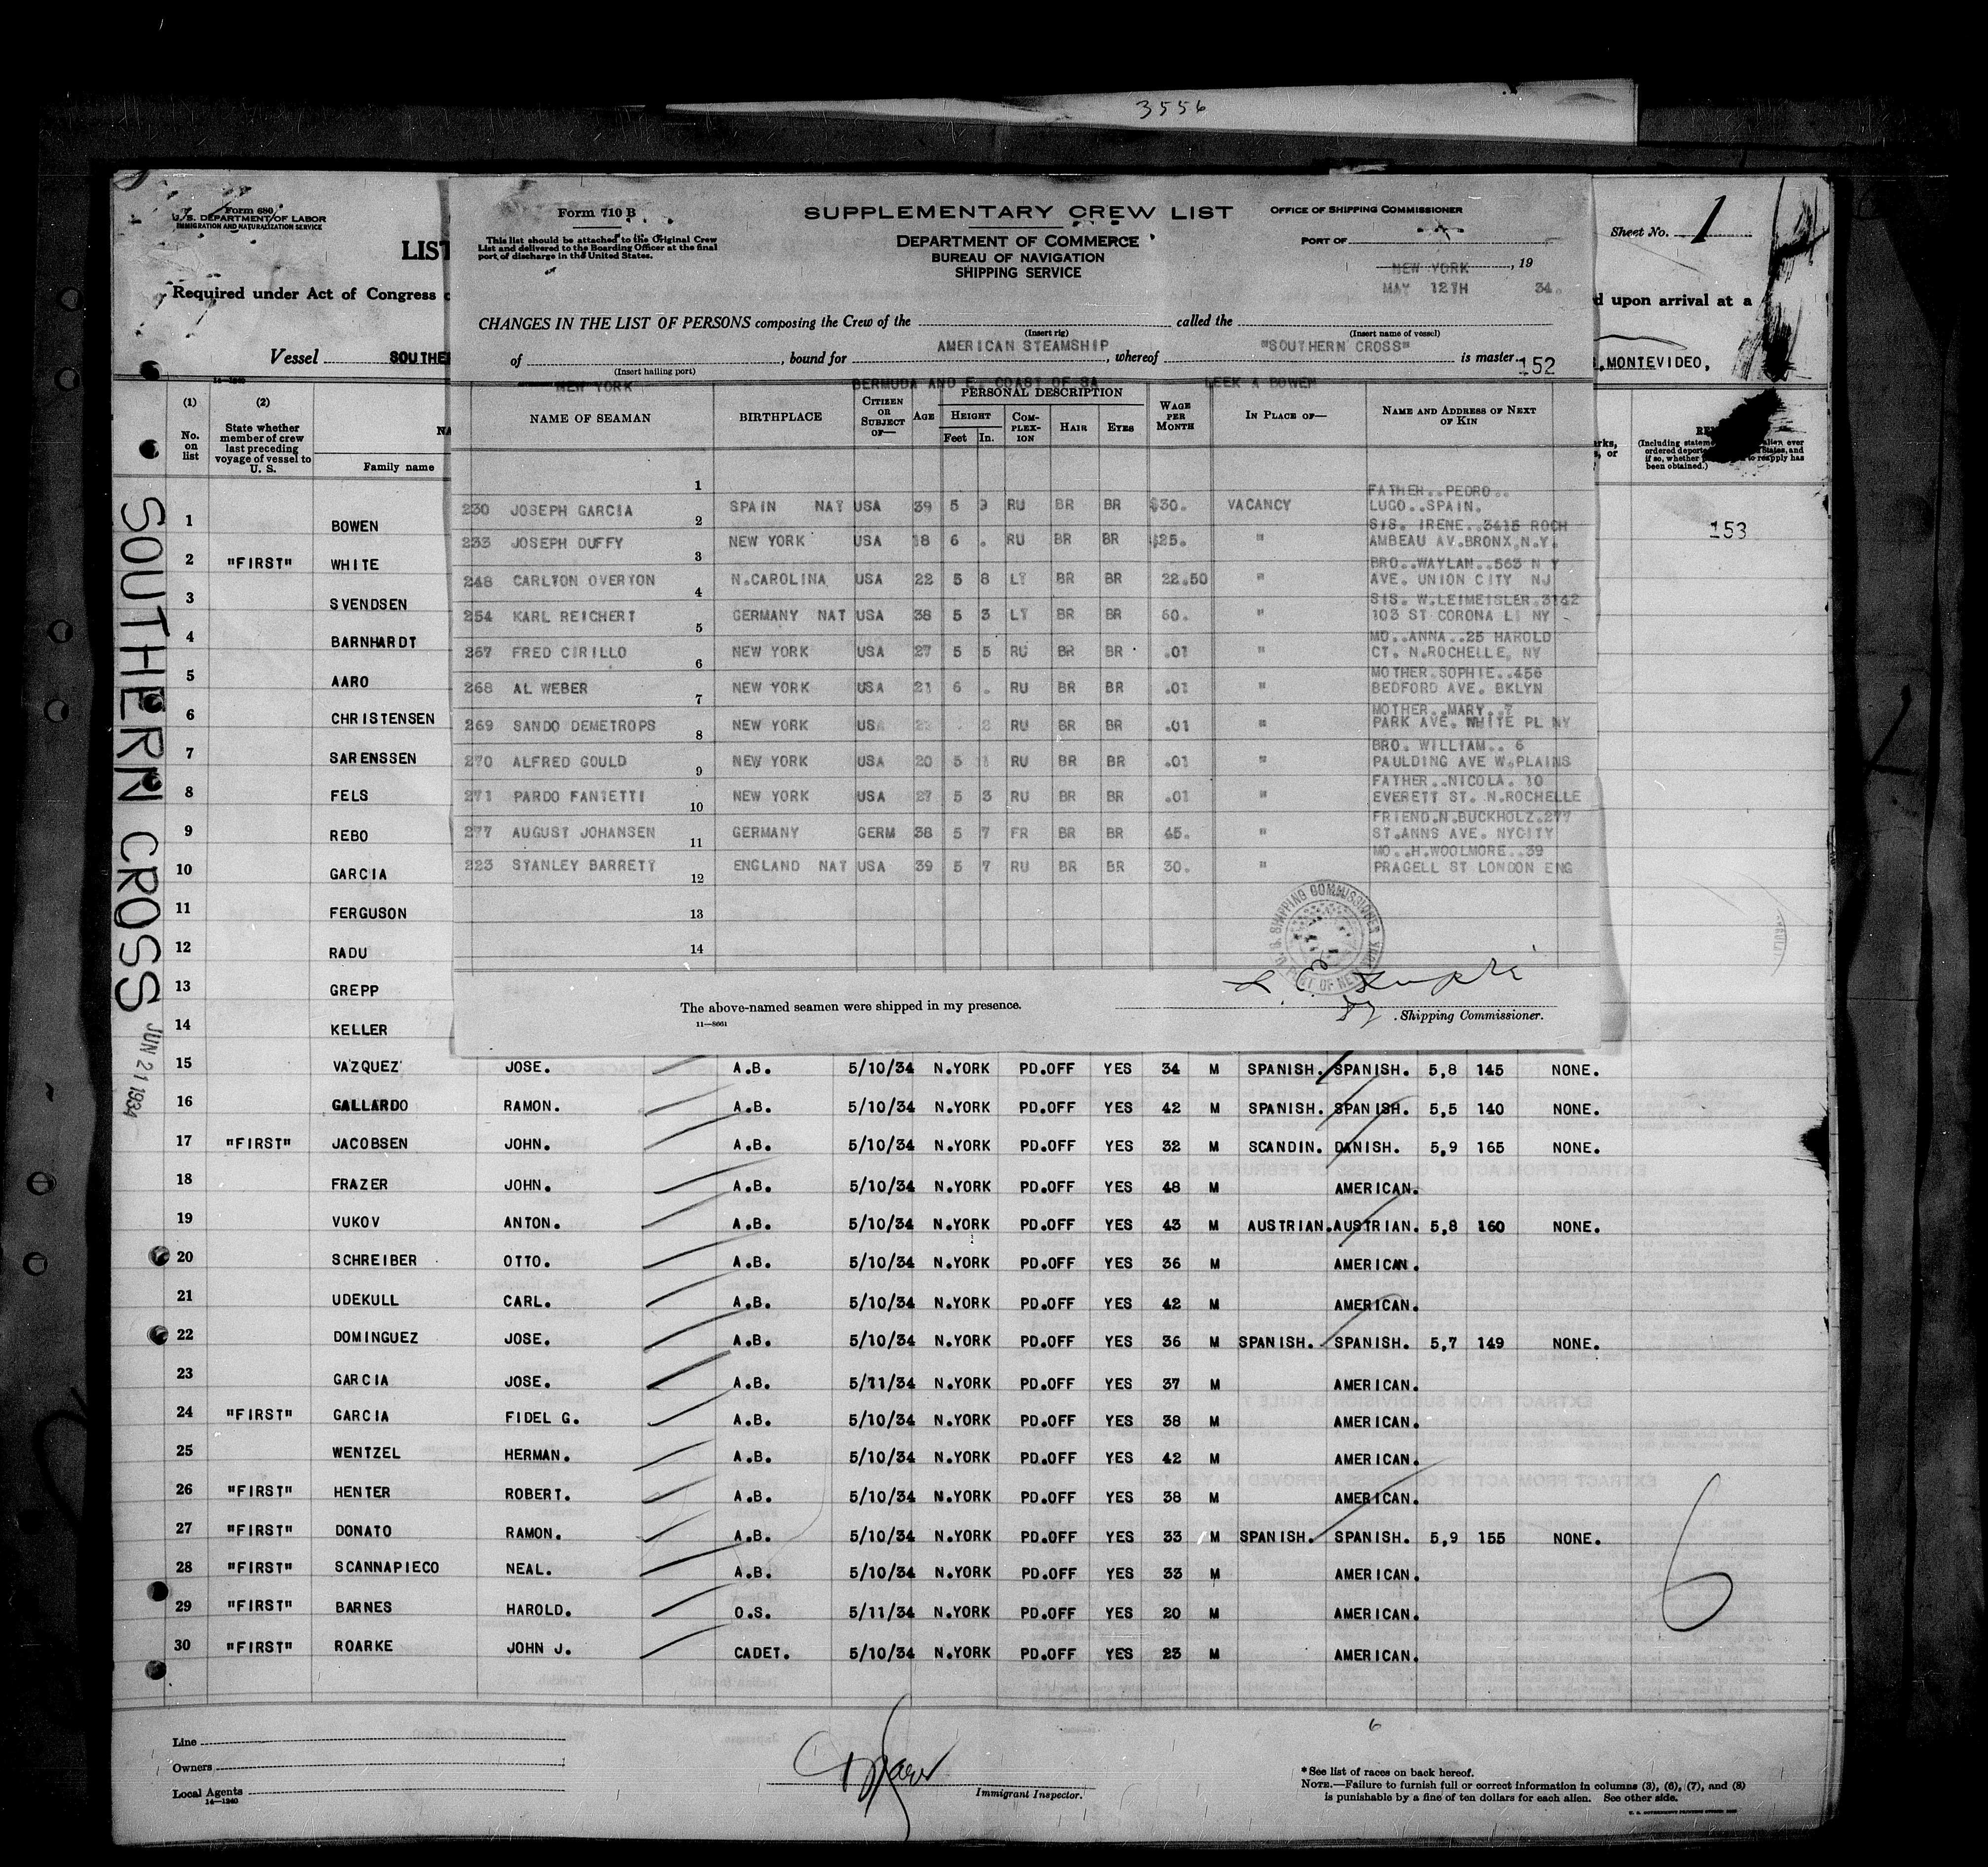 3556
Form 680
U. S. DEPARTMENT OF LABOR
IMMIGRATION AND NATURALIZATION SERVICE
LIST
Required under Act of Congress
Vessel SOUTHE
Sheet No. 1
d upon arrival at a
MONTEVIDEO,
Form 710 B
This list should be attached to the Original Crew
List and delivered to the Boarding Officer at the final
port of discharge in the United States.
SUPPLEMENTARY CREW LIST
DEPARTMENT OF COMMERCE
BUREAU OF NAVIGATION
SHIPPING SERVICE
OFFICE OF SHIPPING COMMISSIONER
PORT OF
NEW YORK , 19
MAY 12TH 34.
CHANGES IN THE LIST OF PERSONS composing the Crew of the called the
(Insert rig) (Insert name of vessel)
AMERICAN STEAMSHIP "SOUTHERN CROSS"
of , bound for , whereof is master.
(Insert hailing port)
152
NEW YORK BERMUDA AND E. COAST OF SA LEEK A BOWEN
NAME OF SEAMAN BIRTHPLACE CITIZEN OR SUBJECT OF— AGE PERSONAL DESCRIPTION HEIGHT Feet In. COMPLEXION HAIR EYES WAGE PER MONTH IN PLACE OF— NAME AND ADDRESS OF NEXT OF KIN
1
FATHER..PEDRO..
230 JOSEPH GARCIA SPAIN NAT USA 39 5 9 RU BR BR $30. VACANCY LUGO..SPAIN.
2
SIS. IRENE..3415 ROCH
233 JOSEPH DUFFY NEW YORK USA 18 6 . RU BR BR $25. " AMBEAU AV.BRONX.N.Y.
3
BRO..WAYLAN..563 N Y
248 CARLTON OVERTON N.CAROLINA USA 22 5 8 LT BR BR 22.50 " AVE. UNION CITY NJ
4
SIS. W.LEIMEISLER.3142
254 KARL REICHERT GERMANY NAT USA 38 5 3 LT BR BR 60. " 103 ST CORONA LI NY
5
MO..ANNA..25 HAROLD
267 FRED CIRILLO NEW YORK USA 27 5 5 RU BR BR .01 " CT. N.ROCHELLE, NY
6
MOTHER.SOPHIE..456
268 AL WEBER NEW YORK USA 21 6 . RU BR BR .01 " BEDFORD AVE. BKLYN
7
MOTHER..MARY..7
269 SANDO DEMETROPS NEW YORK USA RU BR BR .01 " PARK AVE. WHITE PL NY
8
BRO. WILLIAM.. 6
270 ALFRED GOULD NEW YORK USA 20 5 1 RU BR BR .01 " PAULDING AVE W.PLAINS
9
FATHER..NICOLA. 10
271 PARDO FANTETTI NEW YORK USA 27 5 3 RU BR BR .01 " EVERETT ST. N.ROCHELLE
10
FRIEND.N.BUCKHOLZ.277
277 AUGUST JOHANSEN GERMANY GERM 38 5 7 FR BR BR 45. " ST.ANNS AVE. NYCITY
11
MO..H.WOOLMORE..39
223 STANLEY BARRETT ENGLAND NAT USA 39 5 7 RU BR BR 30. " PRAGELL ST LONDON ENG
12
13
14
U.S. SHIPPING COMMISSIONER PORT OF NEW YORK
The above-named seamen were shipped in my presence.
Shipping Commissioner.
11—8661
14—1240
(1) (2)
No. on list
State whether member of crew last preceding voyage of vessel to U. S.
Family name
(Including statement
been obtained.)
153
SOUTHERN CROSS
JUN 21 1934
1 BOWEN
2 "FIRST" WHITE
3 SVENDSEN
4 BARNHARDT
5 AARO
6 CHRISTENSEN
7 SARENSSEN
8 FELS
9 REBO
10 GARCIA
11 FERGUSON
12 RADU
13 GREPP
14 KELLER
15 VAZQUEZ JOSE. A.B. 5/10/34 N.YORK PD.OFF YES 34 M SPANISH. SPANISH. 5,8 145 NONE.
16 GALLARDO RAMON. A.B. 5/10/34 N.YORK PD.OFF YES 42 M SPANISH. SPANISH. 5,5 140 NONE.
17 "FIRST" JACOBSEN JOHN. A.B. 5/10/34 N.YORK PD.OFF YES 32 M SCANDIN. DANISH. 5,9 165 NONE.
18 FRAZER JOHN. A.B. 5/10/34 N.YORK PD.OFF YES 48 M AMERICAN.
19 VUKOV ANTON. A.B. 5/10/34 N.YORK PD.OFF YES 43 M AUSTRIAN. AUSTRIAN. 5,8 160 NONE.
20 SCHREIBER OTTO. A.B. 5/10/34 N.YORK PD.OFF YES 36 M AMERICAN.
21 UDEKULL CARL. A.B. 5/10/34 N.YORK PD.OFF YES 42 M AMERICAN.
22 DOMINGUEZ JOSE. A.B. 5/10/34 N.YORK PD.OFF YES 36 M SPANISH. SPANISH. 5,7 149 NONE.
23 GARCIA JOSE. A.B. 5/11/34 N.YORK PD.OFF YES 37 M AMERICAN.
24 "FIRST" GARCIA FIDEL G. A.B. 5/10/34 N.YORK PD.OFF YES 38 M AMERICAN.
25 WENTZEL HERMAN. A.B. 5/10/34 N.YORK PD.OFF YES 42 M AMERICAN.
26 "FIRST" HENTER ROBERT. A.B. 5/10/34 N.YORK PD.OFF YES 38 M AMERICAN.
27 "FIRST" DONATO RAMON. A.B. 5/10/34 N.YORK PD.OFF YES 33 M SPANISH. SPANISH. 5,9 155 NONE.
28 "FIRST" SCANNAPIECO NEAL. A.B. 5/10/34 N.YORK PD.OFF YES 33 M AMERICAN.
29 "FIRST" BARNES HAROLD. O.S. 5/11/34 N.YORK PD.OFF YES 20 M AMERICAN.
30 "FIRST" ROARKE JOHN J. CADET. 5/10/34 N.YORK PD.OFF YES 23 M AMERICAN.
6
6
Line
Owners
Local Agents
14—1240
Immigrant Inspector.
*See list of races on back hereof.
NOTE.—Failure to furnish full or correct information in columns (3), (6), (7), and (8)
is punishable by a fine of ten dollars for each alien. See other side.